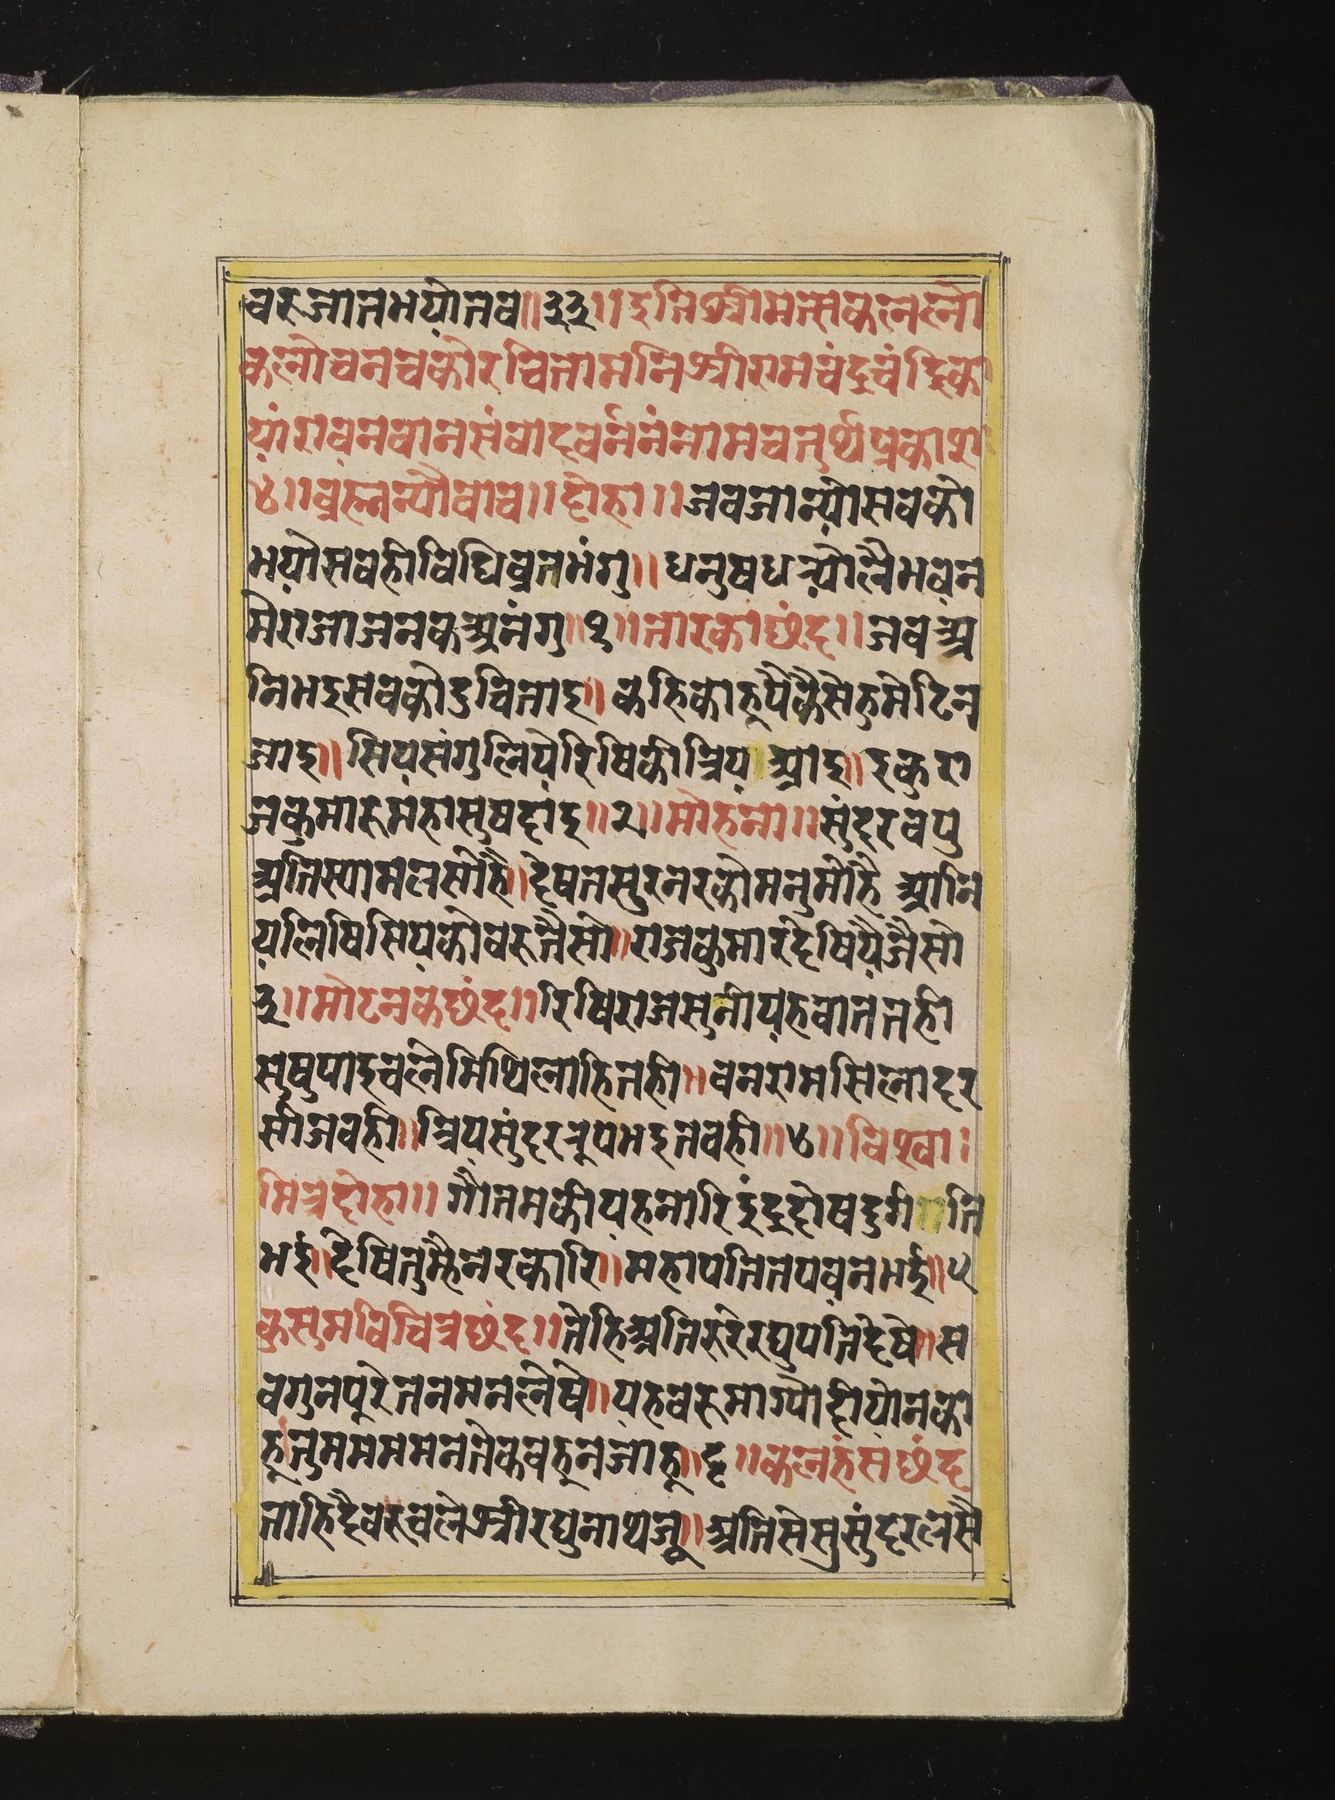 बरु जात भयो तब ॥३३॥ इति श्रीमत्सकललो
कलोचनचकोरचिंतामनि श्रीरामचंद्रचंद्रिका
यां रावनबानसंवादबर्ननंनाम चतुर्थ प्रकाश
४॥ ब्रह्मन्यौवाच ॥ दोहा ॥ जब जान्यो सबको
भयो सबही बिधि ब्रत भंगु ॥ धनुष धर्‍यो लै भवन
मे राजा जनक अनंगु ॥१॥ तारका छंद ॥ जब आ
नि भइ सबको दुचिताइ ॥ कहि केहू पै कैसेहु मेटि न
जाइ ॥ सिय संगु लिये रिषि की त्रिय आइ ॥ इकु रा
जकुमारु महा सुषदाइ ॥२॥ मोहना ॥ सुंदर बपु
अति स्यामल सोहै ॥ देषत सुर नर को मनु मोहै आनि
य लिषि सिय को बरु जैसो ॥ राजकुमार देषियै जैसो
३॥ मोटनक छंद ॥ रिषिराज सुनी यह बात तही
सुषु पाइ चले मिथिलाहि तही ॥ बन राम सिला दर
सी जबही ॥ त्रिय सुंदर रुप भइ तबही ॥४॥ बिश्वा
मित्र दोहा ॥ गौतम की यह नारि इंद्र दोष दुर्ग ति
भई ॥ देषि तुम्है नरकारि ॥ महा पतित पवन भई ॥५
कुसुमबिचित्र छंद ॥ तेहि अति रुरे रघुपति देषे ॥ स
ब गुन पुरे तन मन लेषे ॥ यह बरु माग्यो दीयो न का
हू तुम मम मन ते कबहू न जाहू ॥ ६ ॥ कलहंस छंद
ताहि दै बरु चले श्रीरघुनाथ जू ॥ अति से सु सुंदर लसै